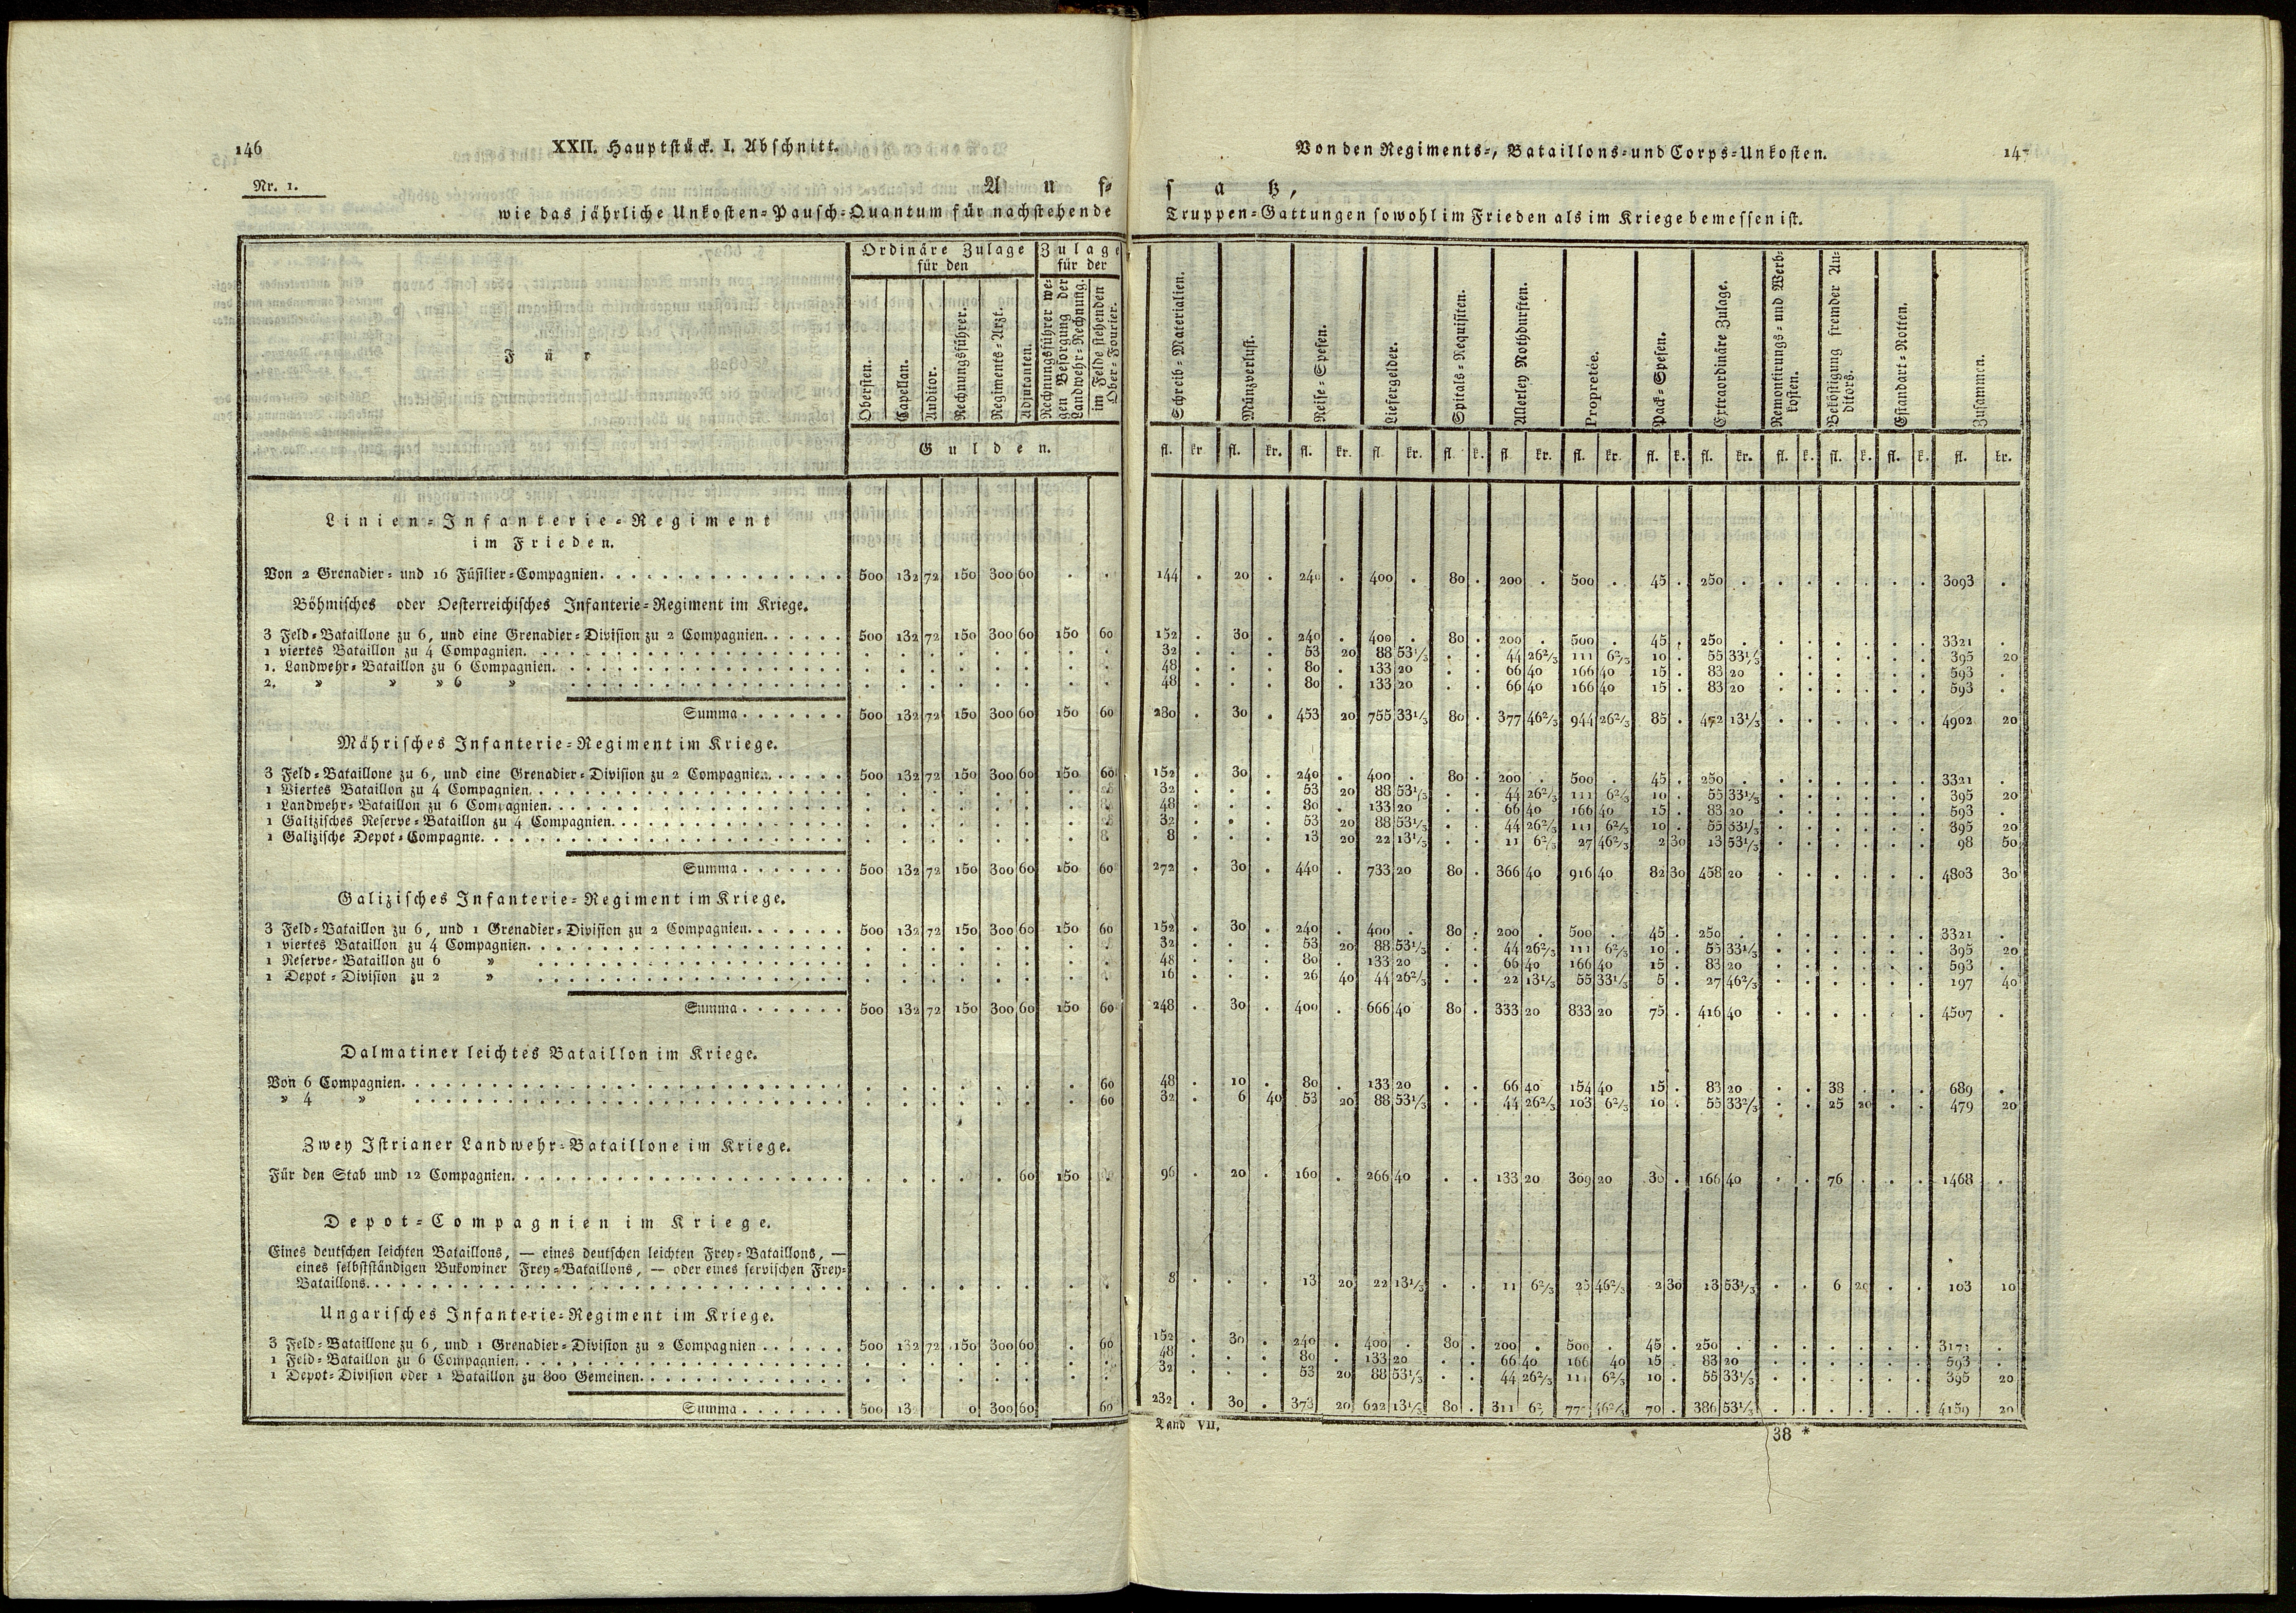 146
XXII. Hauptstück. I. Abschnitt.
Nr. 1.
A u f=
wie das jährliche Unkosten=Pausch=Quantum für nachstehende
Von den Regiments=, Bataillons= und Corps=Unkosten.
14
s a tz,
Truppen=Gattungen sowohl im Frieden als im Kriege bemessen ist.
Für
Ordinäre Zulage für den
Zulage für der
Obersten.
Capellan.
Auditor.
Rechnungsführer.
Regiments=Arzt.
Adjutanten.
Rechnungsführer wegen Besorgung der Landwehr=Rechnung.
im Felde stehenden Ober=Fourier.
Gulden.
Schreib=Materialien.
Münzverlust.
Reise=Spesen.
Liefergelder.
Spitals=Requisiten.
Allerley Nothdurften.
Propretée.
Pack=Spesen.
Extraordinäre Zulage.
Remontirungs= und Werb=kosten.
Beköstigung fremder Au=ditors.
Estandart=Rotten.
Zusammen.
fl. kr fl. kr. fl. kr. fl. kr. fl. k. fl. kr. fl. kr. fl. k. fl. kr. fl. k. fl. k. fl. k. fl. kr.
Linien=Infanterie=Regiment
im Frieden.
Von 2 Grenadier= und 16 Füsilier=Compagnien. 500 132 72 150 300 60 . . 144 . 20 . 240 . 400 . 80 . 200 . 500 . 45 . 250 . . . . . . . 3093 .
Böhmisches oder Oesterreichisches Infanterie=Regiment im Kriege.
3 Feld=Bataillone zu 6, und eine Grenadier=Division zu 2 Compagnien. 500 132 72 150 300 60 150 60 152 . 30 . 240 . 400 . 80 . 200 . 500 . 45 . 250 . . . . . . . 3321 .
1 viertes Bataillon zu 4 Compagnien. . . . . . . . . 32 . . . 53 20 88 53 1/3 . . 44 26 2/3 111 6 2/3 10 . 55 33 1/3 . . . . . . 395 20
1. Landwehr=Bataillon zu 6 Compagnien. . . . . . . . . 48 . . . 80 . 133 20 . . 66 40 166 40 15 . 83 20 . . . . . . 593 .
2. » » » 6 » . . . . . . . . 48 . . . 80 . 133 20 . . 66 40 166 40 15 . 83 20 . . . . . . 593 .
Summa 500 132 72 150 300 60 150 60 280 . 30 . 453 20 755 33 1/3 80 . 377 46 2/3 944 26 2/3 85 . 472 13 1/3 . . . . . . 4902 20
Mährisches Infanterie=Regiment im Kriege.
3 Feld=Bataillone zu 6, und eine Grenadier=Division zu 2 Compagnien. 500 132 72 150 300 60 150 60 152 . 30 . 240 . 400 . 80 . 200 . 500 . 45 . 250 . . . . . . . 3321 .
1 Viertes Bataillon zu 4 Compagnien. . . . . . . . . 32 . . . 53 20 88 53 1/3 . . 44 26 2/3 111 6 2/3 10 . 55 33 1/3 . . . . . . 395 20
1 Landwehr=Bataillon zu 6 Compagnien. . . . . . . . . 48 . . . 80 . 133 20 . . 66 40 166 40 15 . 83 20 . . . . . . 593 .
1 Galizisches Reserve=Bataillon zu 4 Compagnien. . . . . . . . . 32 . . . 53 20 88 53 1/3 . . 44 26 2/3 111 6 2/3 10 . 55 33 1/3 . . . . . . 395 20
1 Galizische Depot=Compagnie. . . . . . . . . 8 . . . 13 20 22 13 1/3 . . 11 6 2/3 27 46 2/3 2 30 13 53 1/3 . . . . . . 98 50
Summa 500 132 72 150 300 60 150 60 272 . 30 . 440 . 733 20 80 . 366 40 916 40 82 30 458 20 . . . . . . 4803 30
Galizisches Infanterie=Regiment im Kriege.
3 Feld=Bataillon zu 6, und 1 Grenadier=Division zu 2 Compagnien. 500 132 72 150 300 60 150 60 152 . 30 . 240 . 400 . 80 . 200 . 500 . 45 . 250 . . . . . . . 3321 .
1 viertes Bataillon zu 4 Compagnien. . . . . . . . . 32 . . . 53 20 88 53 1/3 . . 44 26 2/3 111 6 2/3 10 . 55 33 1/3 . . . . . . 395 20
1 Reserve=Bataillon zu 6 » . . . . . . . . 48 . . . 80 . 133 20 . . 66 40 166 40 15 . 83 20 . . . . . . 593 .
1 Depot=Division zu 2 » . . . . . . . . 16 . . . 26 40 44 26 2/3 . . 22 13 1/3 55 33 1/3 5 . 27 46 2/3 . . . . . . 197 40
Summa 500 132 72 150 300 60 150 60 248 . 30 . 400 . 666 40 80 . 333 20 833 20 75 . 416 40 . . . . . . 4507 .
Dalmatiner leichtes Bataillon im Kriege.
Von 6 Compagnien. . . . . . . . 60 48 . 10 . 80 . 133 20 . . 66 40 154 40 15 . 83 20 . . 38 . . . 689 .
» 4 » . . . . . . . 60 32 . 6 40 53 20 88 53 1/3 . . 44 26 2/3 103 6 2/3 10 . 55 33 2/3 . . 25 20 . . 479 20
Zwey Istrianer Landwehr=Bataillone im Kriege.
Für den Stab und 12 Compagnien. . . . . . 60 150 . 96 . 20 . 160 . 266 40 . . 133 20 309 20 30 . 166 40 . . 76 . . . 1468 .
Depot=Compagnien im Kriege.
Eines deutschen leichten Bataillons, — eines deutschen leichten Frey=Bataillons, —
eines selbstständigen Bukowiner Frey=Bataillons, — oder eines servischen Frey=
Bataillons. . . . . . . . . 8 . . . 13 20 22 13 1/3 . . 11 6 2/3 25 46 2/3 2 30 13 53 1/3 . . 6 20 . . 103 10
Ungarisches Infanterie=Regiment im Kriege.
3 Feld=Bataillone zu 6, und 1 Grenadier=Division zu 2 Compagnien 500 132 72 150 300 60 . 60 152 . 30 . 240 . 400 . 80 . 200 . 500 . 45 . 250 . . . . . . . 3171 .
1 Feld=Bataillon zu 6 Compagnien. . . . . . . . . 48 . . . 80 . 133 20 . . 66 40 166 40 15 . 83 20 . . . . . . 593 .
1 Depot=Division oder 1 Bataillon zu 800 Gemeinen. . . . . . . . . 32 . . . 53 20 88 53 1/3 . . 44 26 2/3 111 6 2/3 10 . 55 33 1/3 . . . . . . 395 20
Summa 500 300 60 60 232 . 30 . 373 20 622 13 1/3 80 . 311 46 2/3 70 . 386 53 1/3 . . . . . . 4159 20
Band VII.
38 *